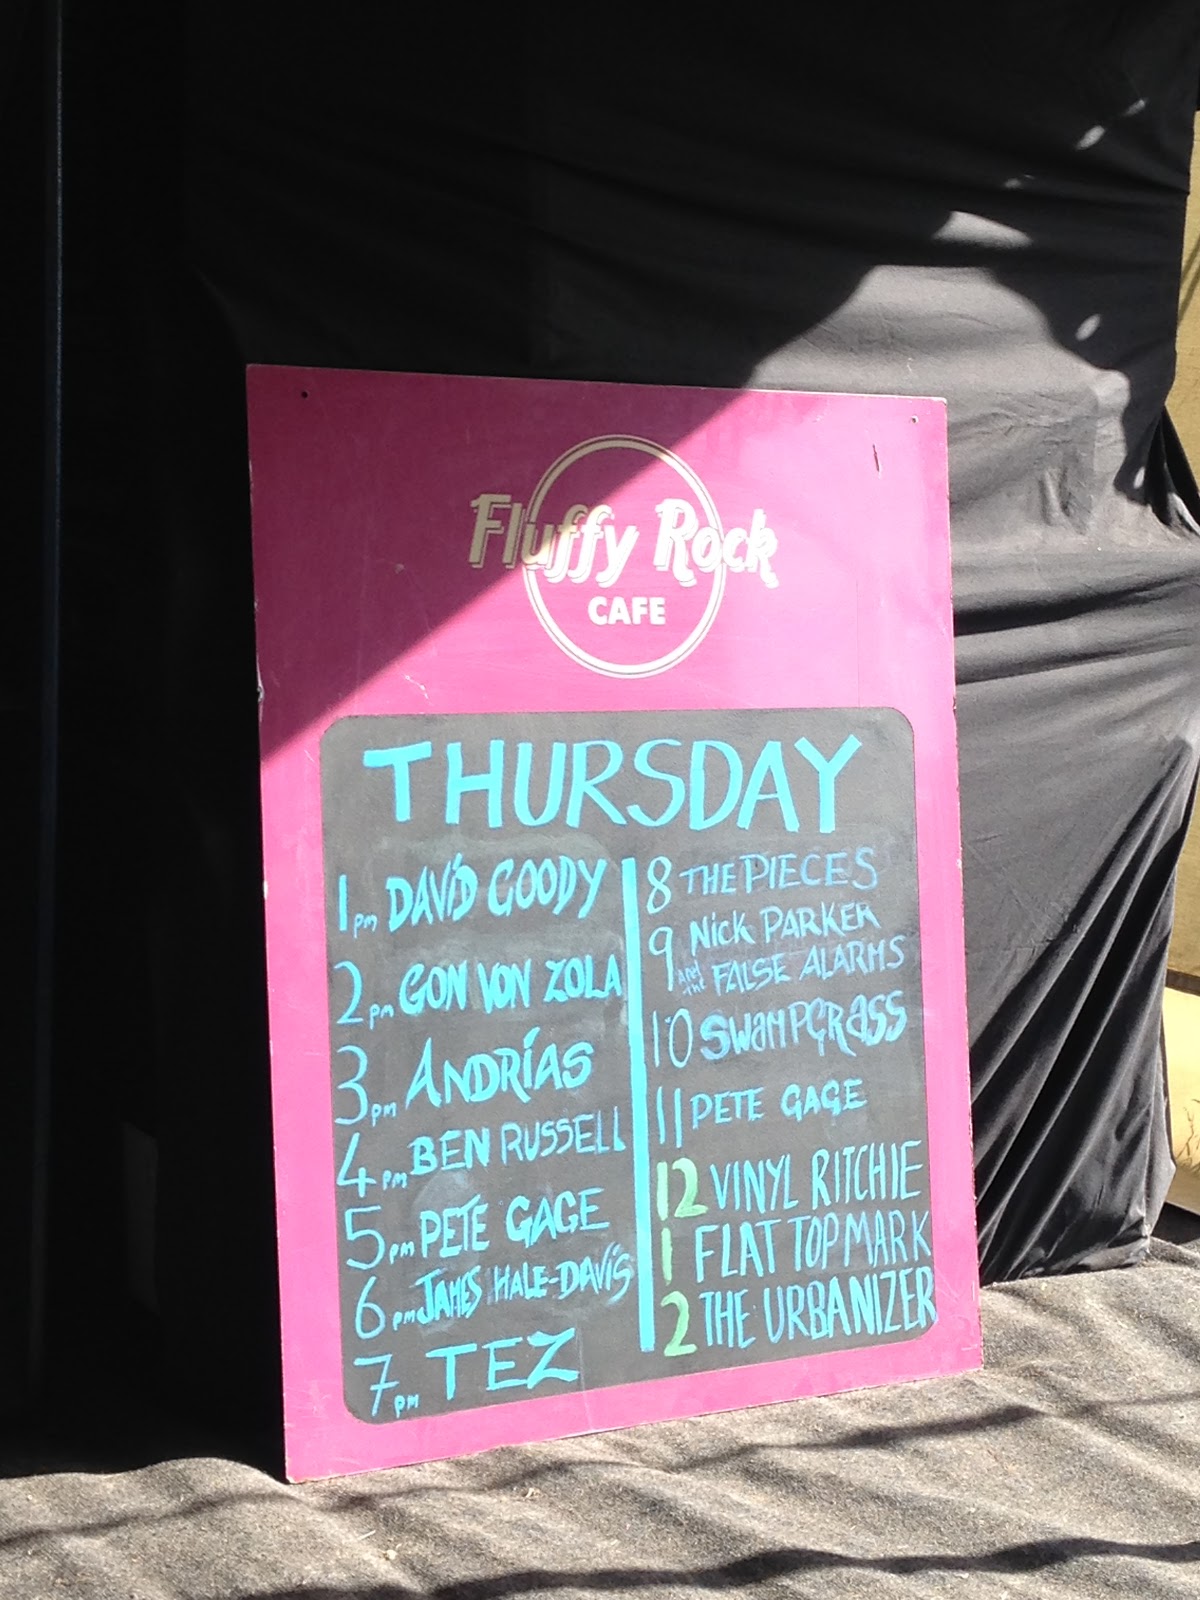 Fluffy Rock
CAFE
THURSDAY
1pm DAVID GOODY
2pm GON VON ZOLA
3pm ANDRÍAS
4pm BEN RUSSELL
5pm PETE GAGE
6pm JAMES HALE-DAVIS
7pm TEZ
8 THE PIECES
9 NICK PARKER
AND the FALSE ALARMS
10 SWAMPGRASS
11 PETE GAGE
12 VINYL RITCHIE
1 FLAT TOP MARK
2 THE URBANIZER